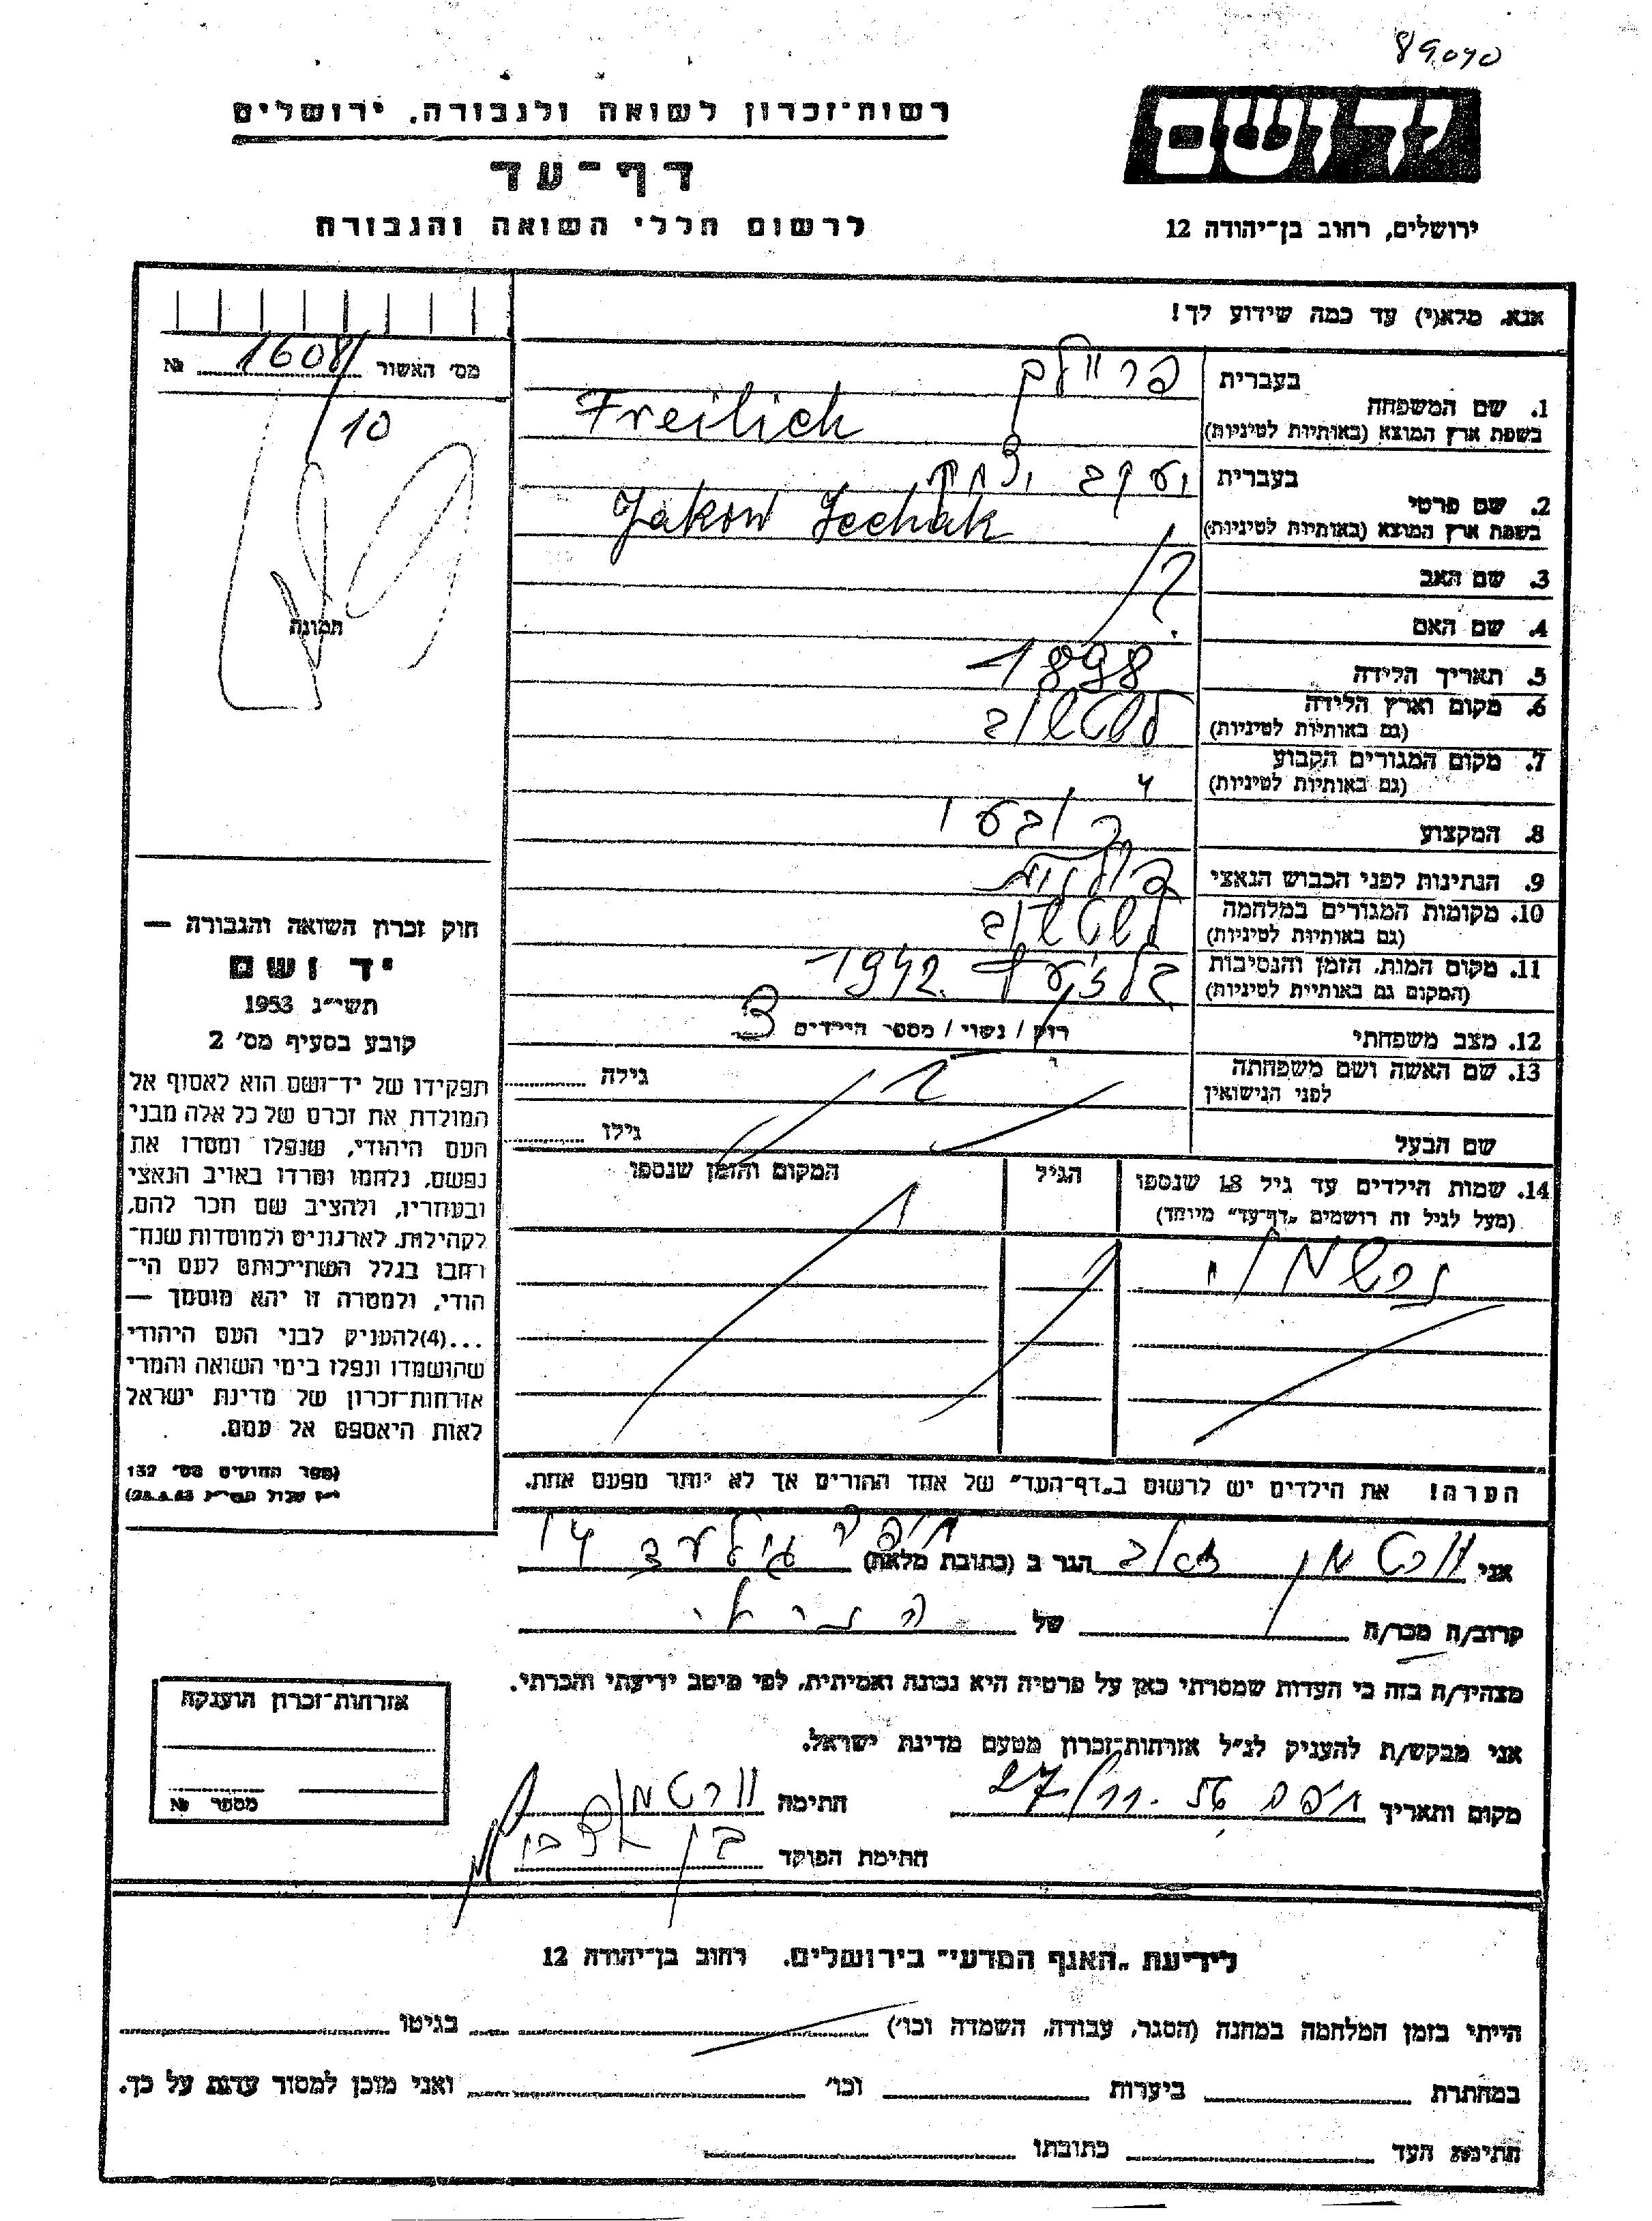 89090
רשות-זכרון לשואה ולגבורה, ירושלים
יד ושם
דף-עד
לרשום חללי השואה והגבורה
ירושלים, רחוב בן-יהודה 12
אנא, מלא(י) עד כמה שידוע לך!
מס' האשור 1608/ №
10
תמונה
1. שם המשפחה
בעברית פריילך
בשפת ארץ המוצא (באותיות לטיניות) Freilich
2. שם פרטי
בעברית יעקב יצחק
בשפת ארץ המוצא (באותיות לטיניות) Jakow Icchak
3. שם האב
4. שם האם
5. תאריך הלידה 1898
6. מקום וארץ הלידה
(גם באותיות לטיניות)
7. מקום המגורים הקבוע
(גם באותיות לטיניות) "
8. המקצוע כובעי
9. הנתינות לפני הכבוש הנאצי פולנית
10. מקומות המגורים במלחמה
(גם באותיות לטיניות)
11. מקום המות, הזמן והנסיבות בלזעץ 1942.
(המקום גם באותיות לטיניות)
12. מצב משפחתי רוק / נשוי / מספר הילדים 3
13. שם האשה ושם משפחתה
לפני הנישואין ? גילה
שם הבעל גילו
14. שמות הילדים עד גיל 18 שנספו הגיל המקום והזמן שנספו
(מעל לגיל זה רושמים "דף-עד" מיוחד)
נרשמו
הערה! את הילדים יש לרשום ב"דף-העד" של אחד ההורים אך לא יותר מפעם אחת.
אני וורטמן זאב הגר ב (כתובת מלאה) חיפה גילעד 14
קרוב/ה מכר/ה של
מצהיר/ה בזה כי העדות שמסרתי כאן על פרטיה היא נכונה ואמיתית, לפי מיטב ידיעתי והכרתי.
אני מבקש/ת להעניק לנ"ל אזרחות-זכרון מטעם מדינת ישראל.
מקום ותאריך חיפה 27/11. חתימה וורטמן
חתימת הפוקד
חוק זכרון השואה והגבורה —
יד ושם
תשי"ג 1953
קובע בסעיף מס' 2
תפקידו של יד-ושם הוא לאסוף אל
המולדת את זכרם של כל אלה מבני
העם היהודי, שנפלו ומסרו את
נפשם, נלחמו ומרדו באויב הנאצי
ובעוזריו, ולהציב שם וזכר להם,
לקהילות, לארגונים ולמוסדות שנח-
רבו בגלל השתייכותם לעם הי-
הודי, ולמטרה זו יהא מוסמך —
...(4)להעניק לבני העם היהודי
שהושמדו ונפלו בימי השואה והמרי
אזרחות-זכרון של מדינת ישראל
לאות היאספם אל עמם.
(ספר החוקים מס' 132
אזרחות-זכרון הוענקה
מספר №
לידיעת "האגף המדעי" בירושלים. רחוב בן-יהודה 12
הייתי בזמן המלחמה במחנה (הסגר, עבודה, השמדה וכו') בגיטו
במחתרת ביערות וכו' ואני מוכן למסור עדות על כך.
חתימת העד כתובתו